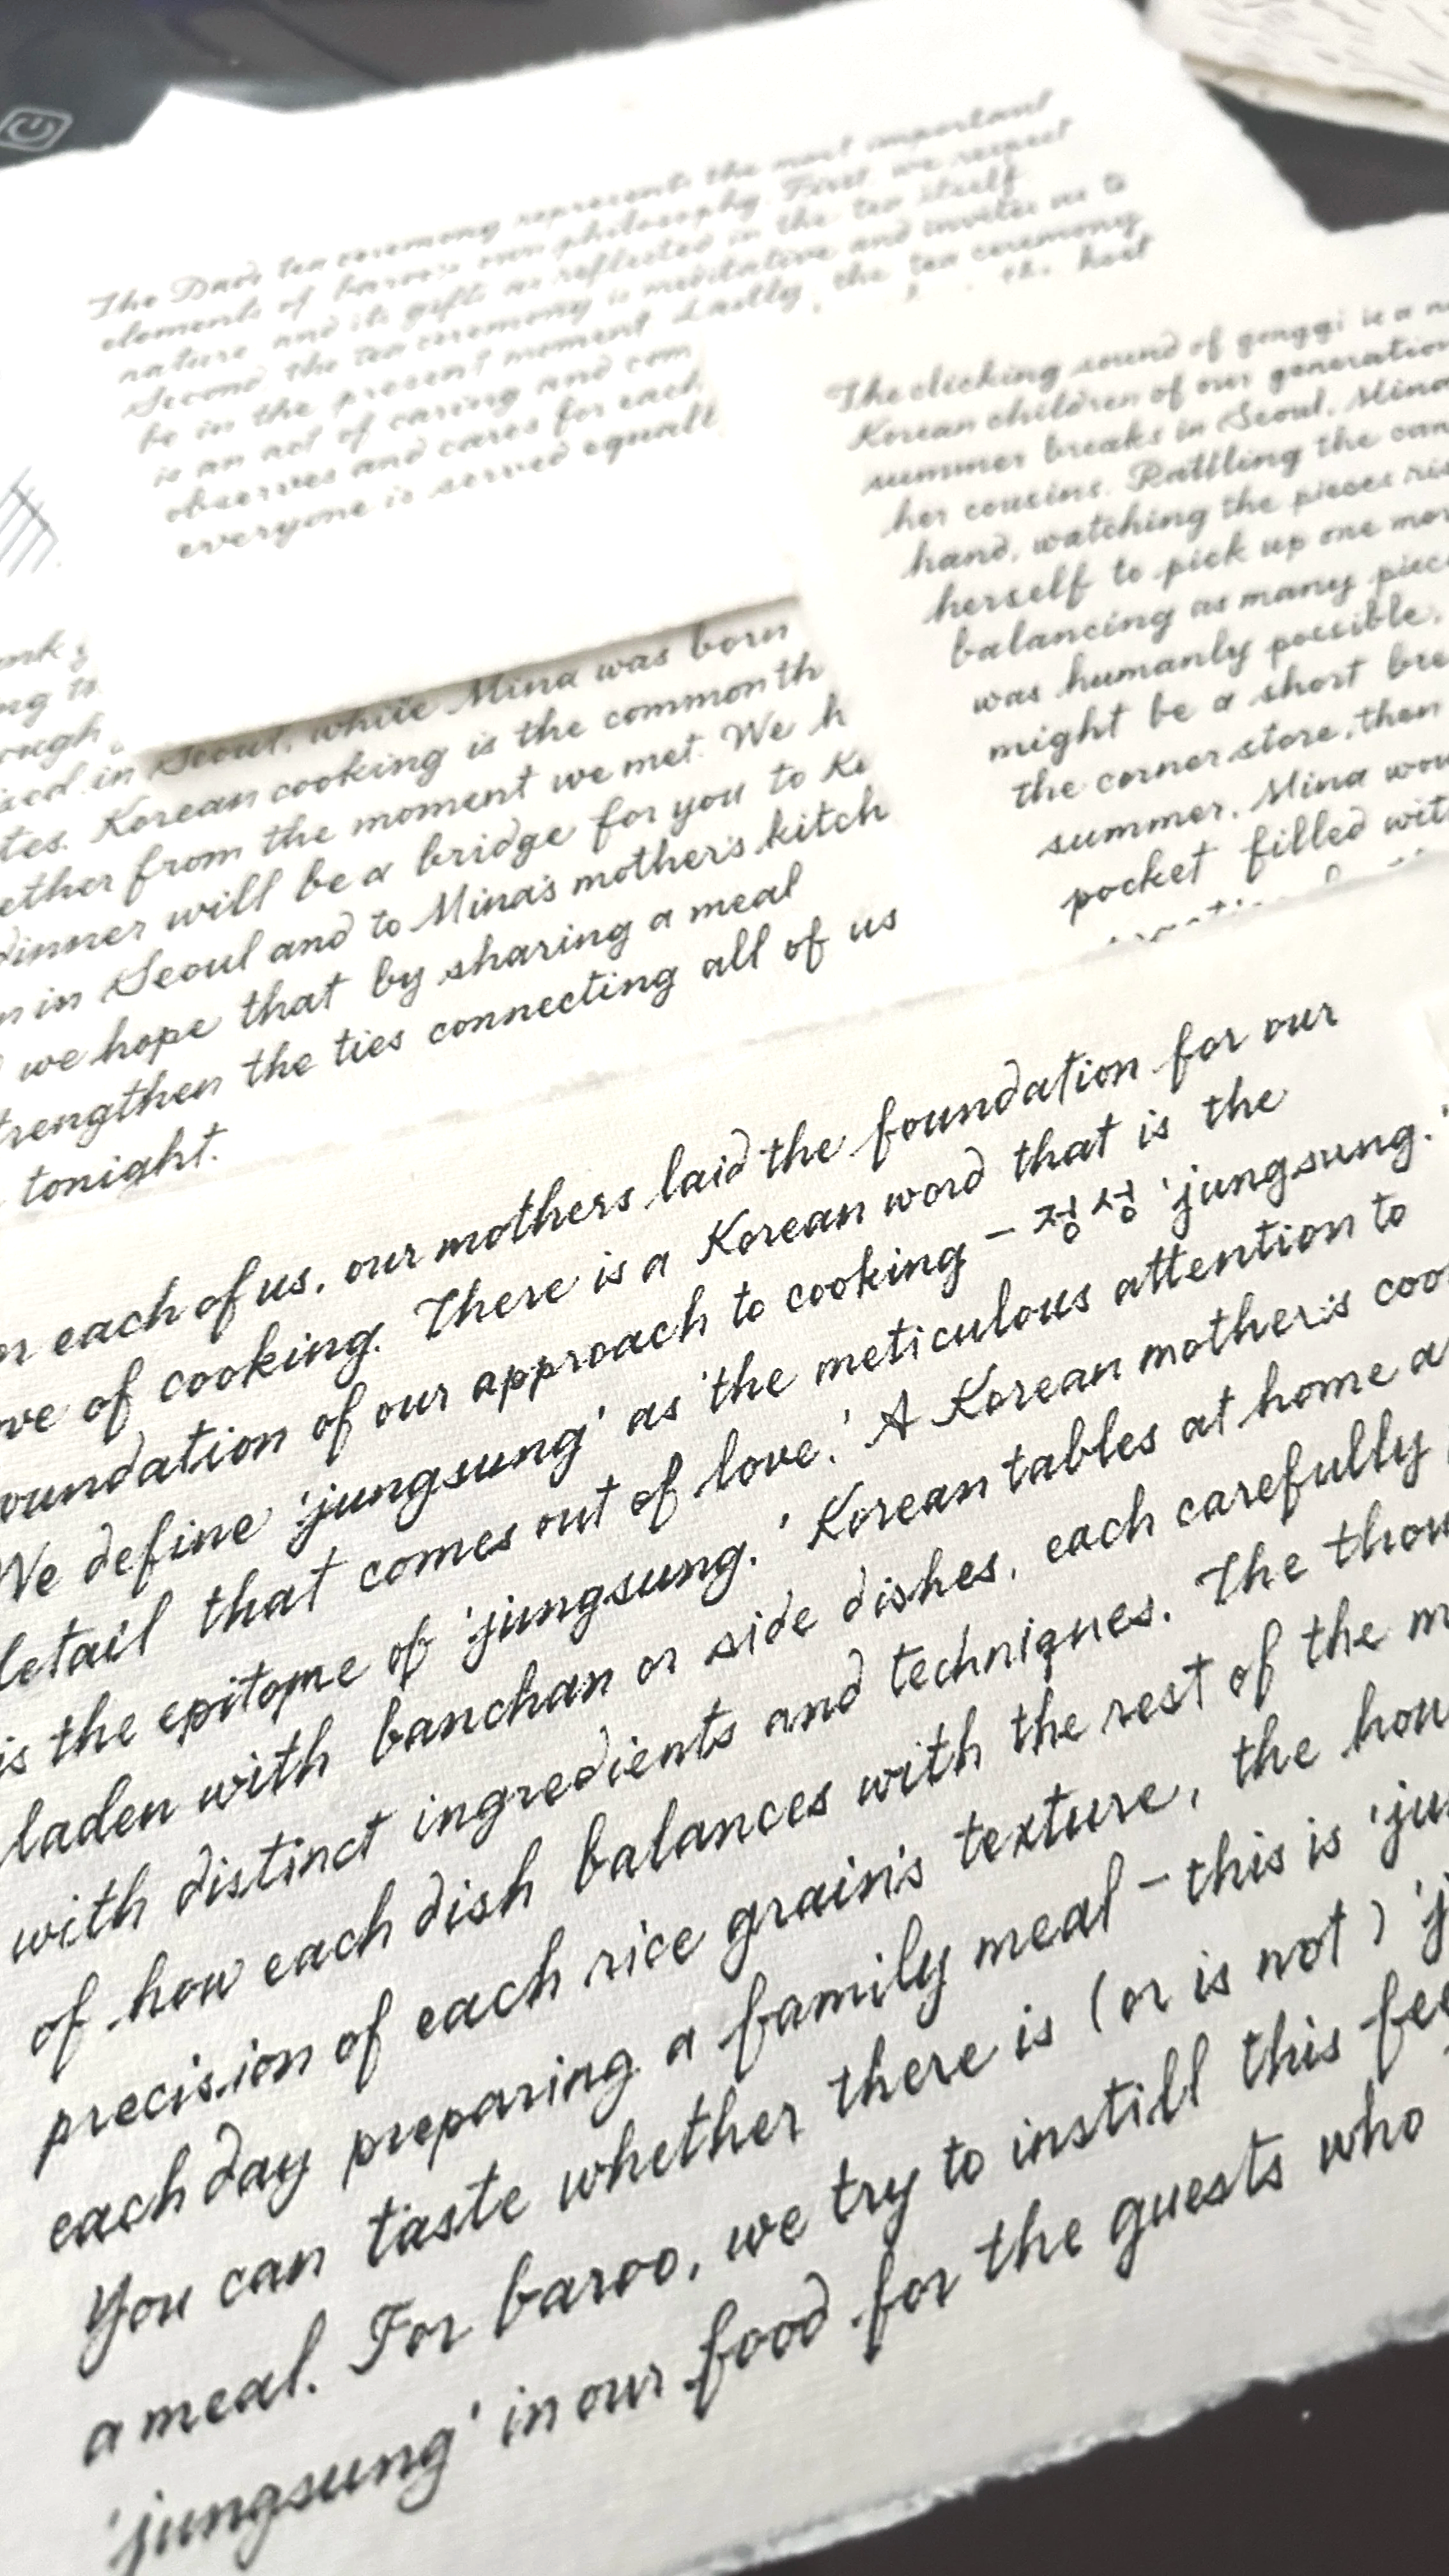 The Dado tea ceremony represents the most important
elements of baroo's own philosophy. First, we respect
nature and its gifts as reflected in the tea itself.
Second, the tea ceremony is meditative and invites us to
be in the present moment. Lastly, the tea ceremony
is an act of caring and com
the host
observes and cares for each
everyone is served equall
The clicking sound of gonggi is a
Korean children of our generation
summer breaks in Seoul, Mina
her cousins. Rattling the
hand, watching the pieces
herself to pick up one
balancing as many
was humanly possible,
might be a short
the corner store, then
summer, Mina
pocket filled
in Seoul, while Mina was born
Korean cooking is the common th
ether from the moment we met. We h
dinner will be a bridge for you to
in Seoul and to Mina's mother's kitch
we hope that by sharing a meal
trengthen the ties connecting all of us
tonight.
each of us, our mothers laid the foundation for our
ove of cooking. There is a Korean word that is the
oundation of our approach to cooking – 정성 'jungsung.'
We define 'jungsung' as 'the meticulous attention to
detail that comes out of love.' A Korean mother's coo
is the epitome of 'jungsung.' Korean tables at home a
laden with banchan or side dishes, each carefully
with distinct ingredients and techniques. The thou
of how each dish balances with the rest of the m
precision of each rice grain's texture, the hou
each day preparing a family meal – this is 'ju
You can taste whether there is (or is not) 'j
a meal. For baroo, we try to instill this fee
'jungsung' in our food for the guests who